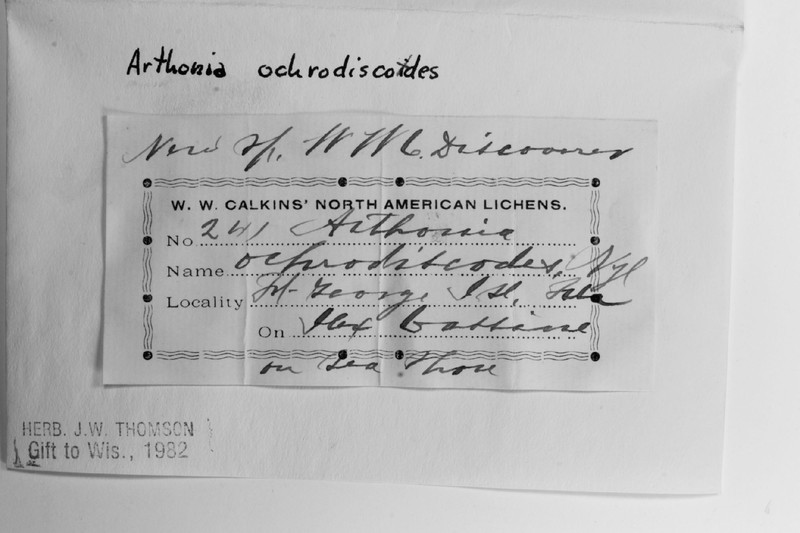 Arthonia ochrodiscoides
New sp. W W C. Discoverer
W. W. CALKINS' NORTH AMERICAN LICHENS.
No. 241 Arthonia
Name ochrodiscodes, Nyl
Locality St. George Isl, Fla
On Ilex Cassine
on Sea Shore
HERB. J.W. THOMSON
Gift to Wis., 1982